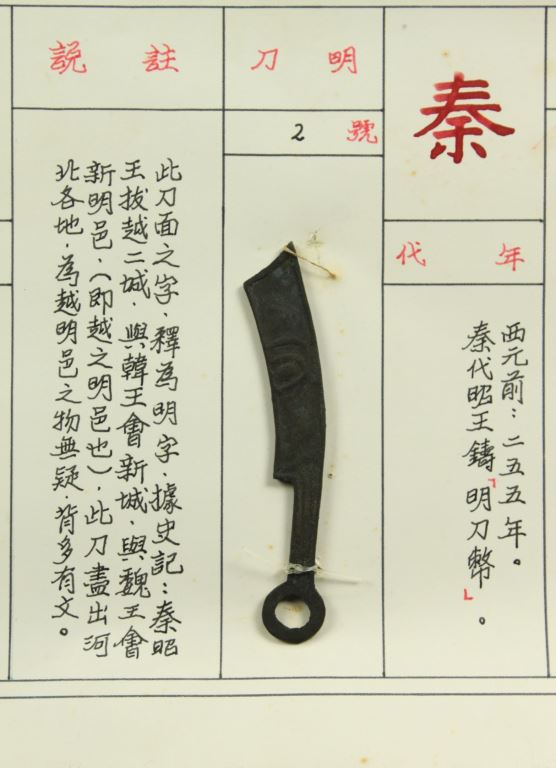 秦
年代
西元前：二五五年。
秦代昭王鑄「明刀幣」。
明刀
2 號
註説
此刀面之字，釋為明字，據史記：秦昭
王拔越二城，與韓王會新城，與魏王會
新明邑，（即越之明邑也），此刀盡出河
北各地，為越明邑之物無疑，背多有文。